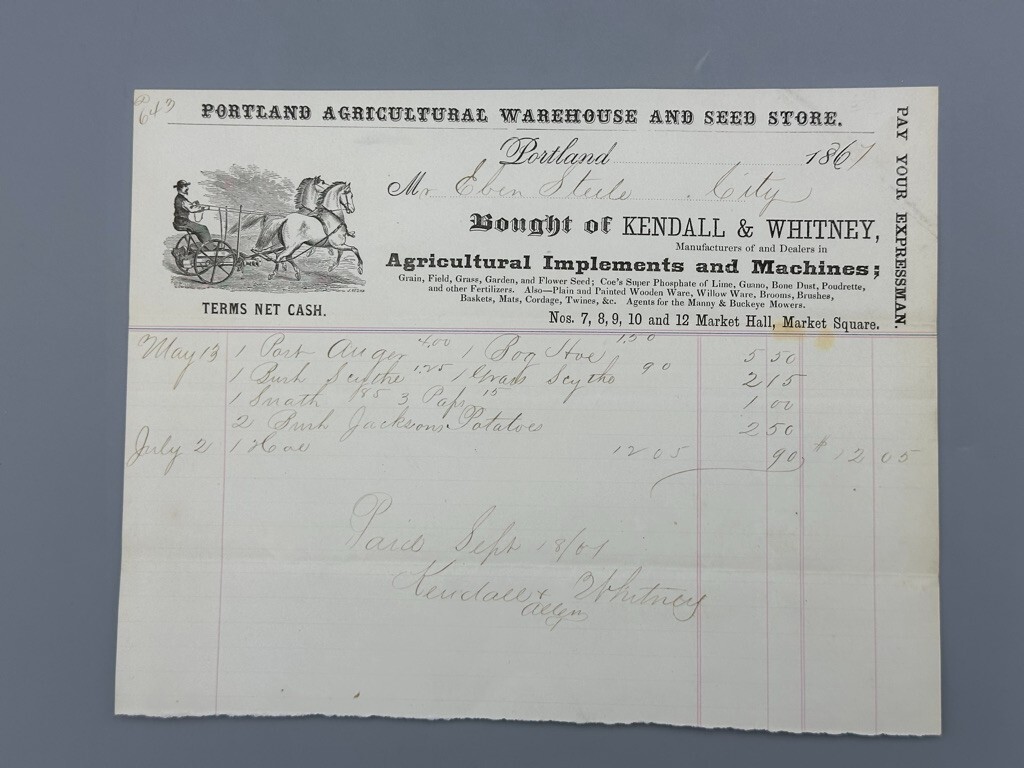 643
PORTLAND AGRICULTURAL WAREHOUSE AND SEED STORE.
Portland 1867
Mr Eben Steele City
Bought of KENDALL & WHITNEY,
Manufacturers of and Dealers in
Agricultural Implements and Machines;
Grain, Field, Grass, Garden, and Flower Seed; Coe's Super Phosphate of Lime, Guano, Bone Dust, Poudrette,
and other Fertilizers. Also—Plain and Painted Wooden Ware, Willow Ware, Brooms, Brushes,
Baskets, Mats, Cordage, Twines, &c. Agents for the Manny & Buckeye Mowers.
Nos. 7, 8, 9, 10 and 12 Market Hall, Market Square.
TERMS NET CASH.
PAY YOUR EXPRESSMAN.
May 13 1 Post Auger 4.00 1 Bog Hoe 1.50 5 50
1 Bush Scythe 1.25 1 Grass Scythe 90 2 15
1 Snath 85 3 15 1 00
2 Bush Jacksons Potatoes 2 50
July 2 1 Hoe 12 05 90 $12 05
Paid Sept 18/67
Kendall & Whitney